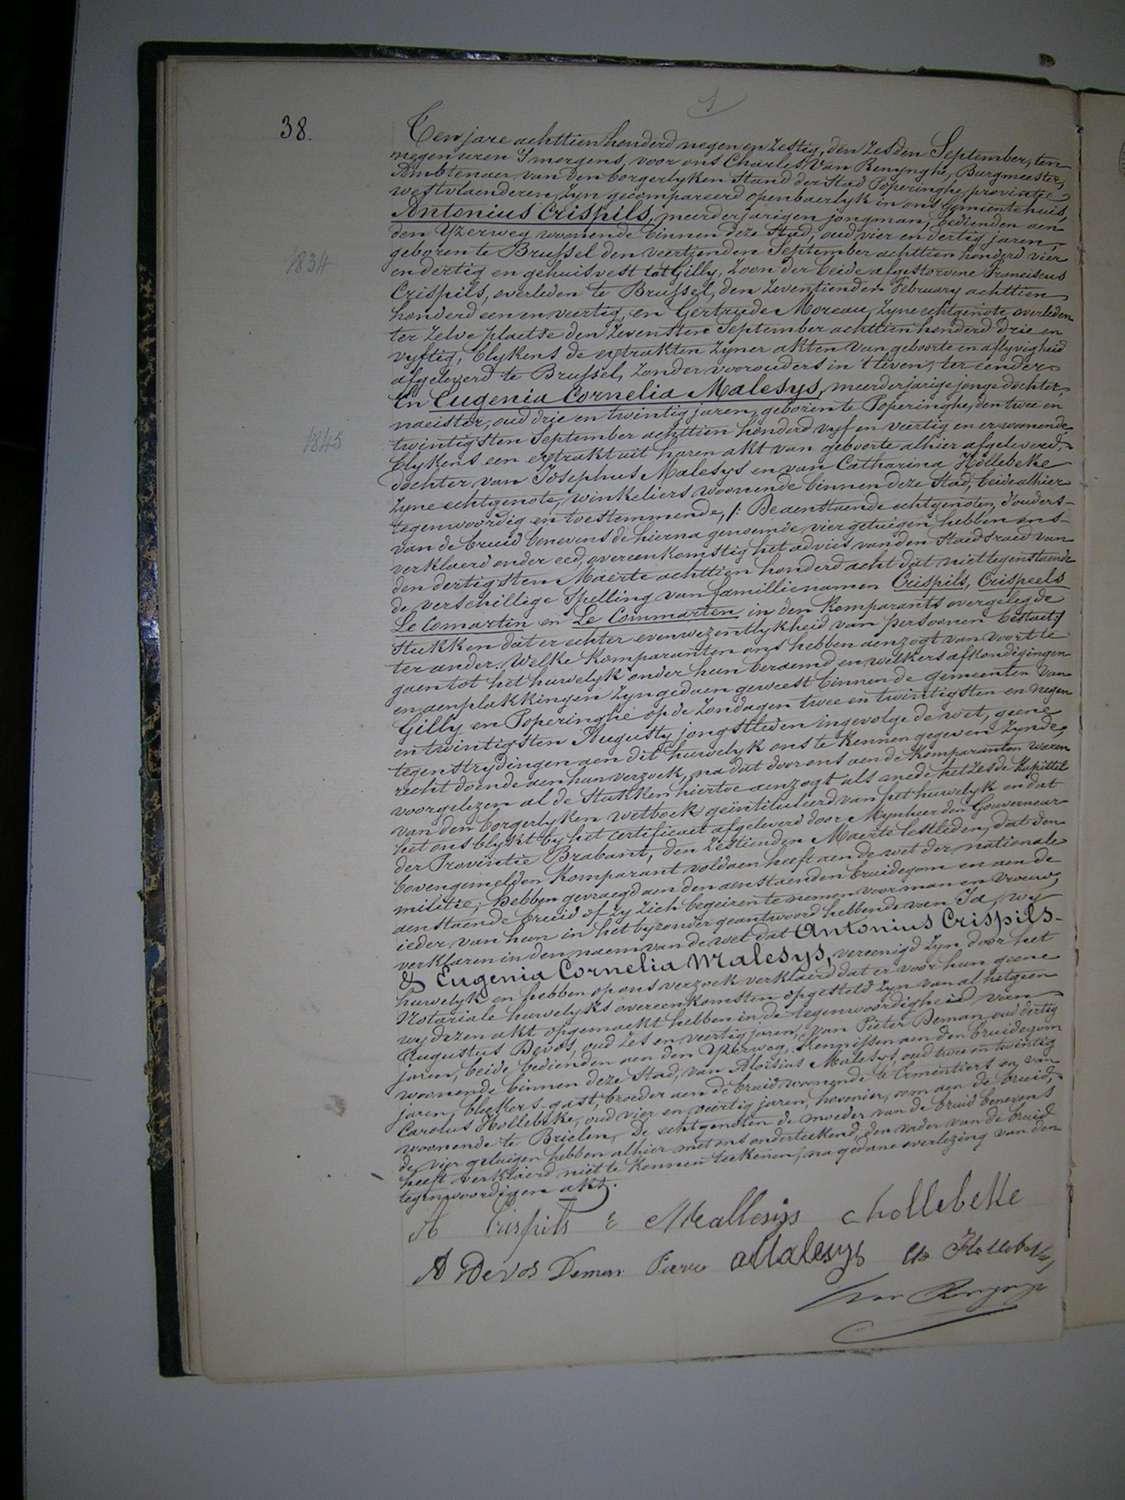 38.
Ten jare achttien honderd negen en zestig, den zesden September, ten
negen uren 's morgens, voor ons Charles Van Renynghe, Burgmeester,
Ambtenaer van den borgerlyken Stand der Stad Poperinghe, provintie
westvlaenderen, zyn gecompareerd openbaerlyk in ons Gemeentehuis,
Antonius Crispils, meerderjarigen jongman, bedienden aen
den Yzerweg, woonende binnen deze Stad, oud vier en dertig jaren,
geboren te Brussel den veertienden September achttien honderd vier
1834
en dertig en gehuisvest tot Gilly, zoon der beide afgestorvene Franciscus
Crispils, overleden te Brussel, den zeventienden February achttien
honderd een en veertig, en Gertrude Moreau, zyne echtgenote, overleden
ter zelve plaetse den zevensten September achttien honderd drie en
vyftig, blykens de extrakten zyner akten van geboorte en aflyvigheid
afgeleverd te Brussel, zonder voorouders in 't leven, ter eender
En Eugenia Cornelia Malesys, meerderjarige jonge dochter,
naeister, oud drie en twintig jaren, geboren te Poperinghe, den twee en
1845
twintigsten September achttien honderd vyf en veertig en er woonende,
blykens een extrakt uit haren akt van geboorte alhier afgeleverd,
dochter van Josephus Malesys en van Catharina Hollebeke
zyne echtgenote, winkeliers woonende binnen deze Stad, beide alhier
tegenwoordig en toestemmende, /: De aenstaende echtgenoten, d'ouders
van de bruid benevens de hierna genoemde vier getuigen hebben ons
verklaerd onder eed, overeenkomstig het advies van den Staedsraed van
den dertigsten Maerte achttien honderd acht dat niettegenstaende
de verschillige Spelling van famillienamen Crispils, Crispeels
Le Comartin en Le Commarten in den komparants overgelegde
Stukken dat er echter evenwezentlykheid van persoonen bestaet:/
ter ander. Welke komparanten ons hebben aenzogt van voort te
gaen tot het huwelyk onder hun beraemd en welkers afkondigingen
en aenplakkingen zyn gedaen geweest binnen de gemeenten van
Gilly en Poperinghe op de Zondagen twee en twintigsten en negen
en twintigsten Augusty jongstleden ingevolge de wet, geene
tegenstrydingen aen dit huwelyk ons te kennen gegeven zynde,
recht doende aen hun verzoek, na dat door ons aen de komparanten waren
voorgelezen al de Stukken hiertoe aenzogt als mede het zesde kapittel
van den borgerlyken wetboek geïntituleerd van het huwelyk en dat
het ons blykt by het certificaet afgeleverd door Mynheer den Gouverneur
der Provintie Brabant, den zestienden Maerte lestleden, dat den
bovengemelden komparant voldaen heeft aen de wet der nationale
militie, Hebben gevraegd aen den aenstaenden bruidegom en aen de
aenstaende bruid of zy zich begeiren te nemen voor man en vrouw,
ieder van hun in het byzonder geantwoord hebbende van Ja, wy
verklaren in den naem van de wet dat Antonius Crispils
& Eugenia Cornelia Malesys, vereenigd zyn door het
huwelyk en hebben op ons verzoek verklaerd dat er voor hun geene
Notariale huwelyks overeenkomsten opgesteld zyn van al hetgeen
wy dezen akt opgemaekt hebben in de tegenwoordigheid van
Augustus Devos, oud zes en veertig jaren, van Pieter Deman, oud dertig
jaren, beide bedienden aen den Yzerweg, kennissen aen den bruidegom
woonende binnen deze Stad, van Aloïsius Malesys, oud twee en twintig
jaren, blekkers-gast, broeder aen de bruid, woonende te Ermentiers en van
Carolus Hollebeke, oud vier en veertig jaren, hovenier, oom aen de bruid,
woonende te Brielen, De echtgenoten de moeder van de bruid benevens
de vier getuigen hebben alhier met ons onderteekend, den vader van de bruid
heeft verklaerd niet te konnen teekenen, na gedane overlezing van den
tegenwoordigen akt.
A Crispils E Mallesys C hollebeke
A Devos Deman Pierre A Malesys Cs Hollebeke
Van Renynghe